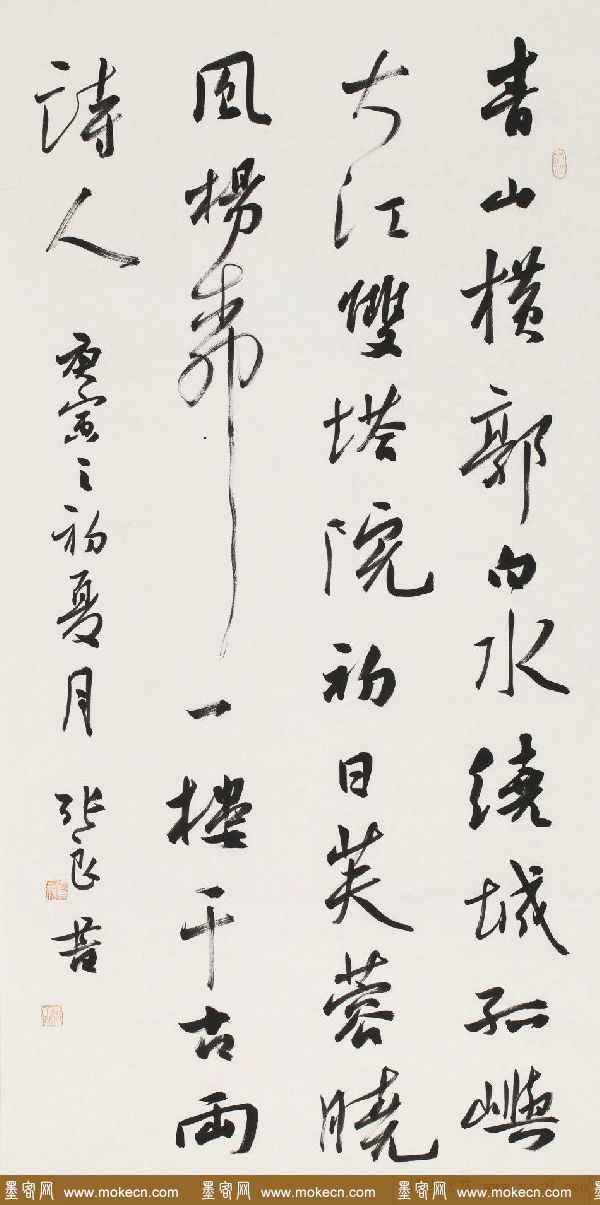 青山橫郭白水繞城孤嶼
大江雙塔院初日芙蓉曉
風楊柳一樓千古兩
詩人
庚寅之初夏月 張良
墨客网 www.mokecn.com 墨客网 www.mokecn.com 墨客网 www.mokecn.com